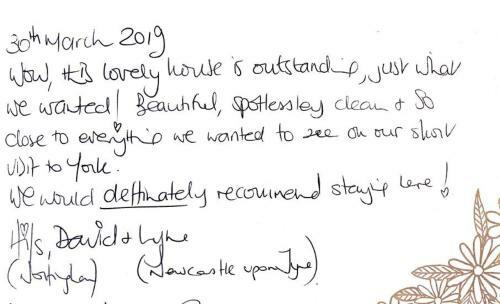 30th March 2019
Wow, this lovely house is outstanding, just what
we wanted! Beautiful, spotlessley clean & so
close to everything we wanted to see on our short
visit to York.
We would deffinately recommend staying here!
Hils, David & Lynne
(Nottingham) (Newcastle upon Tyne).